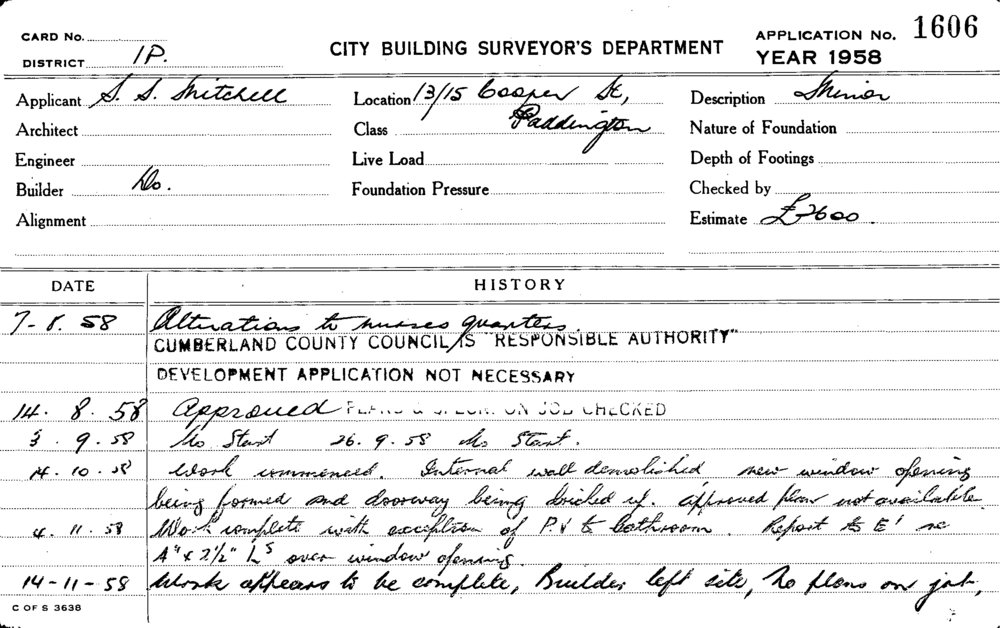 CARD No.
DISTRICT 1P.
CITY BUILDING SURVEYOR'S DEPARTMENT
APPLICATION No. 1606
YEAR 1958
Applicant S. S. Mitchell
Location 13/15 Cooper St,
Paddington
Description Minor
Architect
Class
Nature of Foundation
Engineer
Live Load
Depth of Footings
Builder Do.
Foundation Pressure
Checked by
Alignment
Estimate £2600.
DATE HISTORY
7-8.58 Alterations to nurses quarters.
CUMBERLAND COUNTY COUNCIL IS "RESPONSIBLE AUTHORITY"
DEVELOPMENT APPLICATION NOT NECESSARY
14.8.58 Approved PLANS & SPECIF. ON JOB CHECKED
3.9.58 No Start 26.9.58 No Start.
14.10.58 Work commenced. Internal wall demolished new window opening
being formed and doorway being bricked up. approved plan not available
4.11.58 Work complete with exception of P.V to bathroom. Report to E' re
4" x 2½" Ls over window opening.
14-11-58 Work appears to be complete, Builder left site, No plans on job,
C OF S 3638